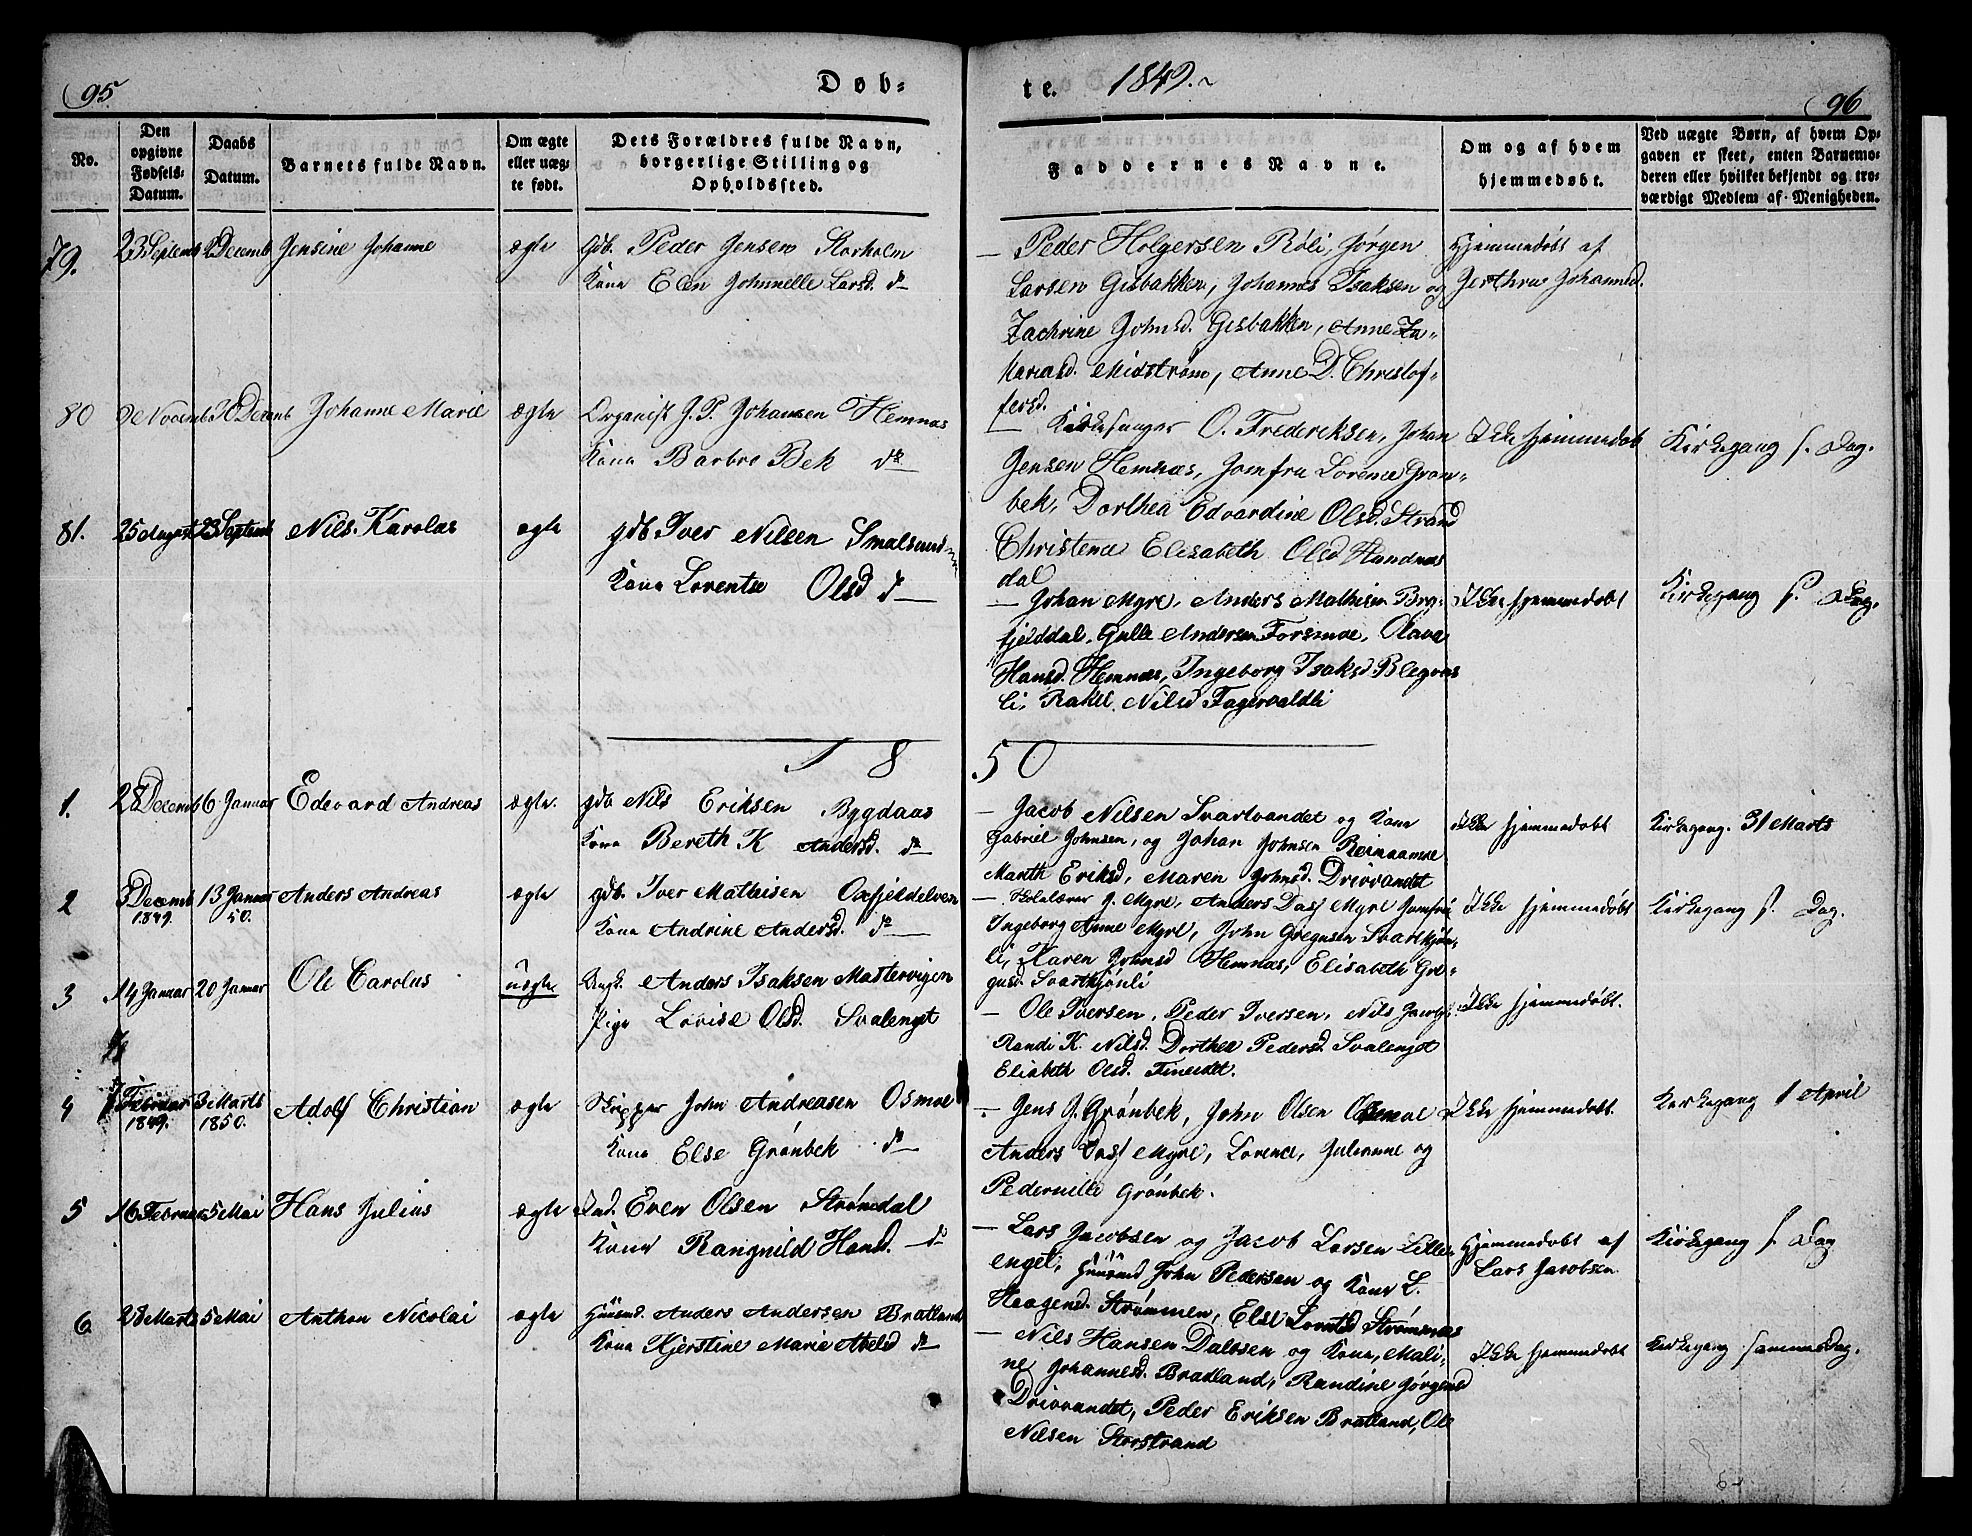 95
Døb-
te.
1849.
96
No.
Den opgivne Fødsels-Datum.
Daabs Datum.
Barnets fulde Navn.
Om ægte eller uæg-te født.
Dets Forældres fulde Navn, borgerlige Stilling og Opholdssted.
Faddernes Navne.
Om og af hvem hjemmedøbt.
Ved uægte Børn, af hvem Op-gaven er skeet, enten Barnemo-deren eller hvilket bekjendt og tro-værdigt Medlem af Menigheden.
79.
23 Septemb
2 Decemb
Jensine Johanne
ægte
gdb. Peder Jensen Storholm
Kone Elen Johnnelle Larsd. do
Peder Holgersen Røli, Jørgen
Larsen Gisbakken, Johannes Isaksen og
Zachrine Johnsd. Gisbakken, Anne Za-
kariasd. Midstrøm, Anne D. Christof-
fersd.
Hjemmedøbt af
Gerthru Johannesd.
80
Novemb
30 Decemb
Johanne Marie
ægte
Organist J. P. Johansen Hemnæs
Kone Barbro Bek do
Kirkesanger O. Frederiksen, Johan
Jensen Hemnæs, Jomfru Lorence Grøn-
bek, Dorthea Edvardine Olsd. Strand
Christence Elisabeth Olsd Handnæs
dal
Ikke hjemmedøbt
Kirkegang s. Dag.
81.
25 August
23 Septemb
Nils Karolus
ægte
gdb Iver Nilsen Smalsund
Kone Lorentse Olsd do
Johan Myre, Anders Mathisen Bryg-
fjelddal, Gulle Andersen Forsmoe, Olava
Hansd. Hemnæs, Ingeborg Isaksd Blegvas
li, Rakel Nilsd Fagervaldli
Ikke hjemmedøbt
Kirkegang s. Dag.
18
50
1.
28 Decemb
6 Januar
Edevard Andreas
ægte.
gdb Nils Eriksen Bygdaas
Kone Bereth K Andersd. do
Jacob Nilsen Svartvandet og Kone
Gabriel Johnsen, og Johan Johnsen Reinaamoe
Marith Eriksd, Maren Johnsd. Drivvandet
Ikke hjemmedøbt
Kirkegang. 31 Marts
2
Decemb
1849.
13 Januar
50.
Anders Andreas
ægte
gdb. Iver Mathisen Oxfjeldelven
Kone Andrine Andersd. do
Skolelærer J. Myre, Anders Dass Myre Jomfru
Ingeborg Anne Myre, John Gregusen Svartkjøn-
li, Karen Johnsd Hemnæs, Elisabeth Gre-
gusd. Svartkjønli
Ikke hjemmedøbt
Kirkegang s. Dag.
3
14 Januar
20 Januar
Ole Carolus
uægte
Ungk. Anders Isaksen Mastervigen
Pige Lovise Olsd. Svalenget
Ole Iversen, Peder Iversen, Nils
Randi K. Nilsd. Dorthea Pedersd. Svalenget
Elisbeth Olsd. Fineidet.
Ikke hjemmedøbt.
4
7 Februar
1849.
3 Marts
1850.
Adolf Christian
ægte
Skipper John Andreasen Osmoe
Kone Else Grønbek do
Jens J. Grønbek, John Olsen Osmoe
Anders Dass Myre, Lorence, Julianne og
Pedernille Grønbek.
Ikke hjemmedøbt.
Kirkegang 1 April
5
16 Februar
5 Mai
Hans Julius
ægte
Ind. Even Olsen Strømdal
Kone Rangnild Hansd. do
Lars Jacobsen og Jacob Larsen Lille-
enget, Huusmd John Pedersen og Kone L.
Haagensd. Strømmen, Else Lorntsd Strømsnæs
Hjemmedøbt af
Lars Jacobsen
Kirkegang s. Dag
6
28 Marts
5 Mai
Anthon Nicolai
ægte
Huusmd. Anders Andersen Bratland
Kone Kjerstine Marie Abelsd do
Nils Hansen Dalosen og Kone, Mali-
ne Johannesd. Bratland, Randine Jørgensd
Drivvandet, Peder Eriksen Bratland, Ole
Nilsen Storstrand
Ikke hjemmedøbt
Kirkegang sammesdag.